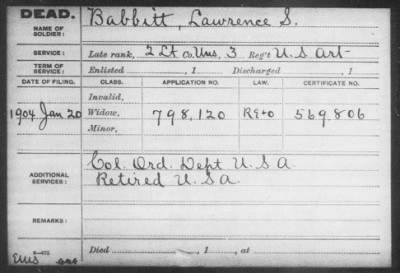 DEAD.
NAME OF SOLDIER: Babbitt, Lawrence S.
SERVICE: Late rank, 2 Lt Co. Uns, 3 Reg't U.S. Art
TERM OF SERVICE: Enlisted , 1 Discharged , 1
DATE OF FILING. CLASS. APPLICATION NO. LAW. CERTIFICATE NO.
Invalid,
1904 Jan 20 Widow, 798,120 569806
Minor,
ADDITIONAL SERVICES: Col. Ord. Dept U.S.A
Retired U.S.A.
REMARKS:
Died , 1 , at